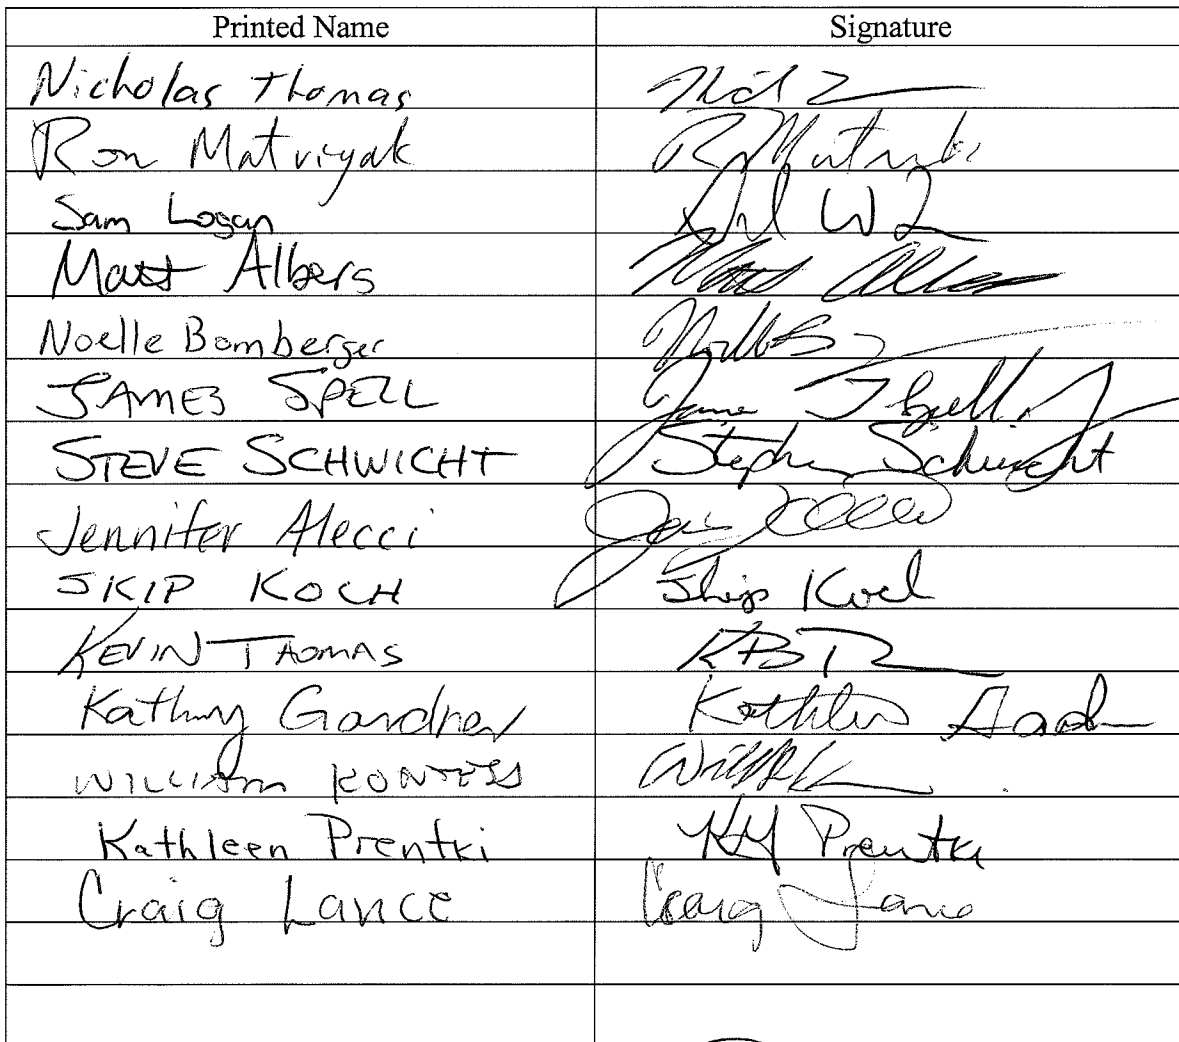 Printed Name Signature
Nicholas Thomas
Ron Matviyak
Sam Logan
Matt Albers Matt Albers
Noelle Bomberger
JAMES SPELL James T Spell Jr
STEVE SCHWICHT Stephen Schwicht
Jennifer Alecci
SKIP KOCH Skip Koch
KEVIN THOMAS
Kathy Gardner Kathleen
WILLIAM
Kathleen Prentki KM Prentki
Craig Lance Craig Lance